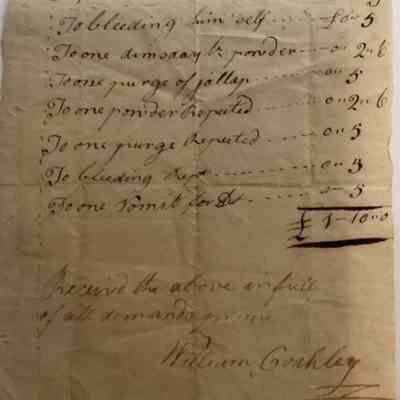 To bleeding him self ---- £0 " 5
To one dimsday's powder --- 0 " 2 " 6
To one purge of jallap ---- 0 " 5
To one powder Repeted ---- 0 " 2 " 6
To one purge Repeted ---- 0 " 5
To bleeding Rept ---- 0 " 5
To one Vomit for Do ---- 0 " 5
£ 1 - 10 " 0
Received the above in full
of all demands
William Coakley